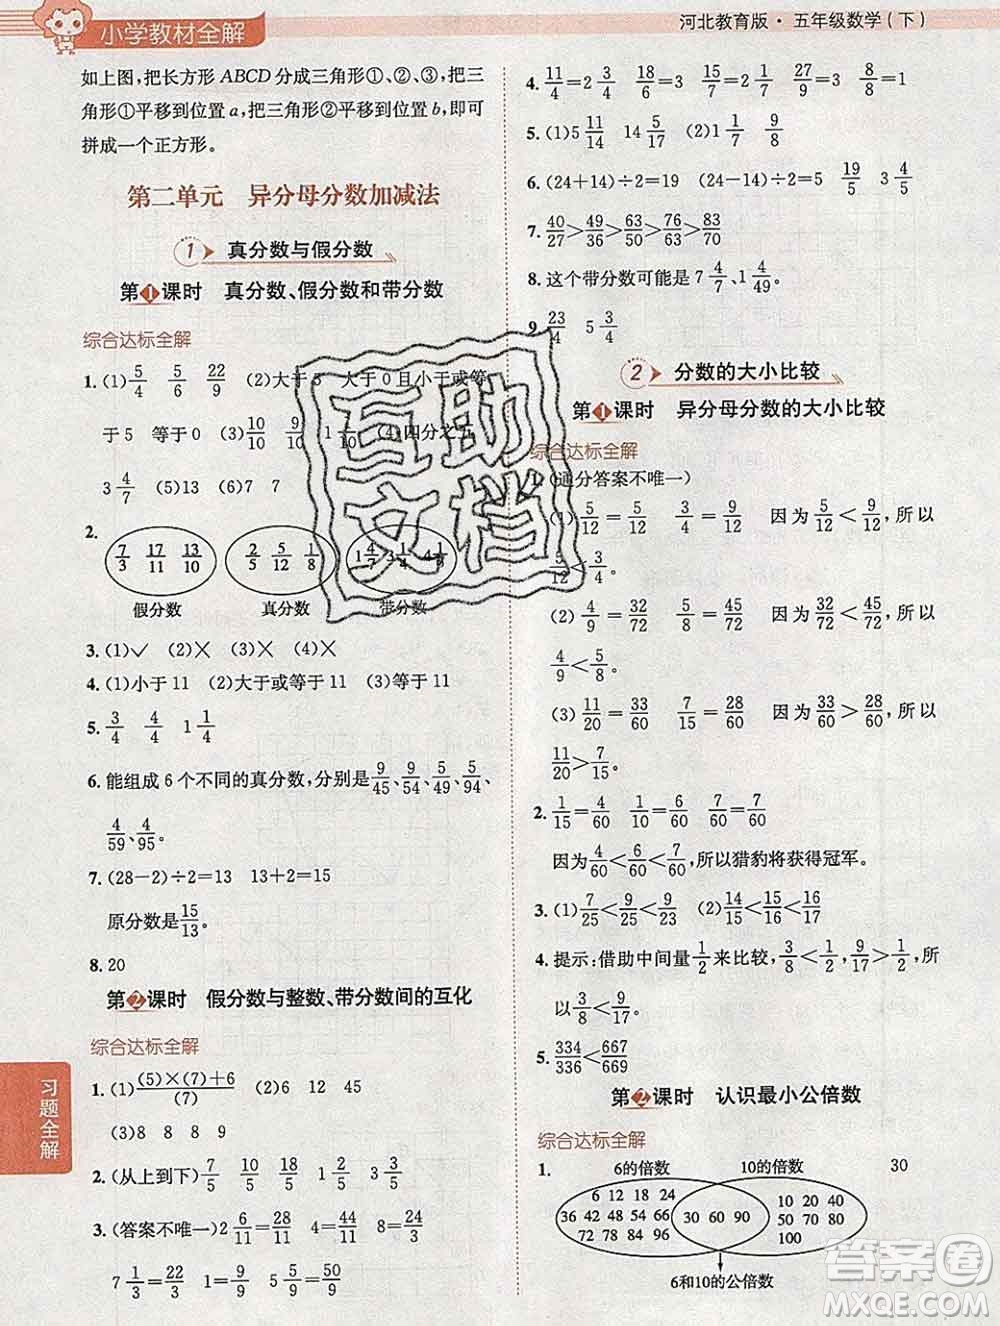 小学教材全解
河北教育版·五年级数学(下)
如上图,把长方形 ABCD 分成三角形①、②、③,把三
角形①平移到位置 a,把三角形②平移到位置 b,即可
拼成一个正方形。
第二单元 异分母分数加减法
1 真分数与假分数
第1课时 真分数、假分数和带分数
综合达标全解
1. (1) 5/4 5/6 22/9 (2)大于5 大于0且小于或等
于5 等于0 (3) 10/10 9/10 1 (4)四分之五
3 4/7 (5)13 (6)7 7
2.
7/3 17/11 13/10 2/5 5/12 1/8 1 4/7
假分数 真分数 带分数
3. (1)✓ (2)× (3)× (4)×
4. (1)小于11 (2)大于或等于11 (3)等于11
5. 3/4 4/4 1 1/4
6. 能组成6个不同的真分数,分别是 9/45、9/54、5/49、5/94、
4/59、4/95。
7. (28-2)÷2=13 13+2=15
原分数是 15/13。
8. 20
第2课时 假分数与整数、带分数间的互化
综合达标全解
1. (1) (5)×(7)+6/(7) (2)6 12 45
(3)8 8 8 9
2. (从上到下) 7/5 10/5 14/5 1 3/5 4 1/5
3. (答案不唯一) 2 6/11=28/11 4=44/11 8=16/2
7 1/3=22/3 1=9/9 5 5/9=50/9
习题全解
4. 11/4=2 3/4 15/5=3 7/4=1 3/4 27/9=3 8/8=1
5. (1)5 11/14 14 5/17 (2)1 1/7 9/8
6. (24+14)÷2=19 (24-14)÷2=5 19/5 3 4/5
7. 40/20>49/36>63/50>76/63>83/70
8. 这个带分数可能是 7 4/7、1 4/49。
9. 23/4 5 3/4
2 分数的大小比较
第1课时 异分母分数的大小比较
综合达标全解
1. (通分答案不唯一)
(1) 5/12=5/12 3/4=9/12 因为 5/12<9/12,所以
5/12<3/4。
(2) 4/9=32/72 5/8=45/72 因为 32/72<45/72,所以
4/9<5/8。
(3) 11/20=33/60 7/15=28/60 因为 33/60>28/60,所以
11/20>7/15。
2. 1/15=4/60 1/10=6/60 7/60=7/60
因为 4/60<6/60<7/60,所以猎豹将获得冠军。
3. (1) 7/25<9/25<9/19 (2) 14/15<15/16<16/17
4. 提示:借助中间量 1/2 来比较,3/8<1/2,9/17>1/2,所
以 3/8<9/17。
5. 334/336<667/669
第2课时 认识最小公倍数
综合达标全解
1. 6的倍数 10的倍数 30
6 12 18 24
36 42 48 54
66
72 78 84
30 60 90
10 20 40
50 70 80
100
6和10的公倍数
互助文档
答案圈
MXQE.COM